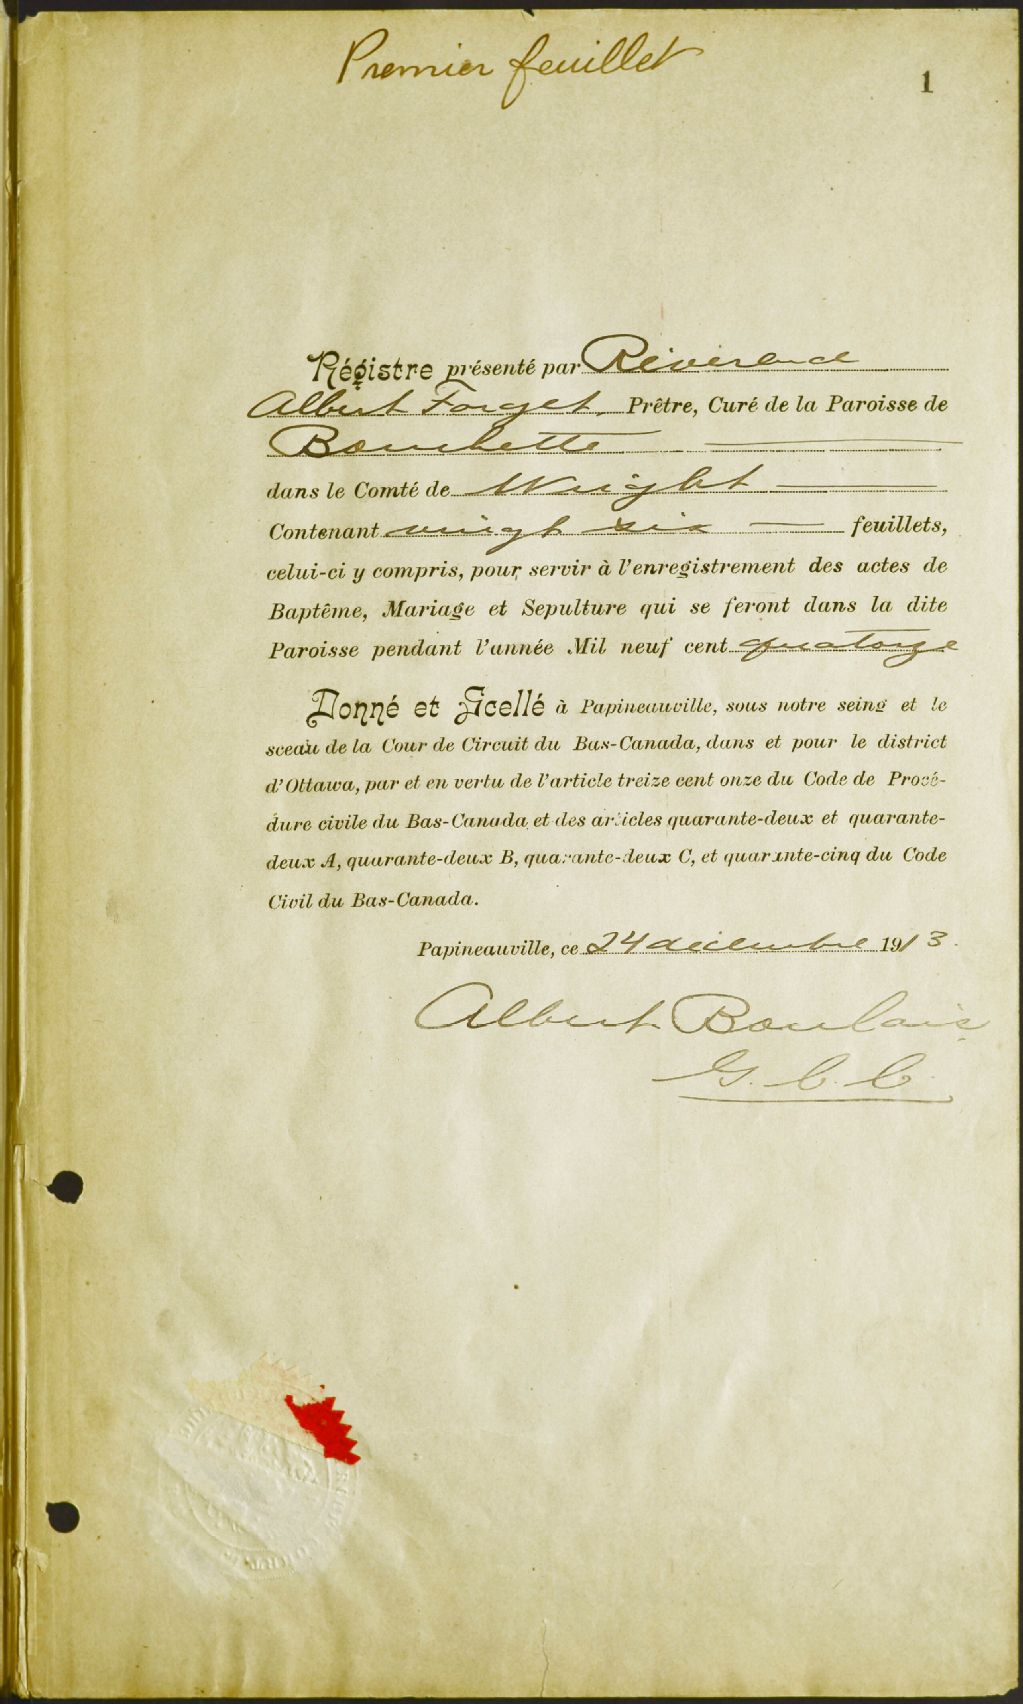 Premier feuillet
1
Régistre présenté par Révérend
Albert Forget, Prêtre, Curé de la Paroisse de
Bouchette
dans le Comté de Wright
Contenant vingt six feuillets,
celui-ci y compris, pour servir à l'enregistrement des actes de
Baptême, Mariage et Sepulture qui se feront dans la dite
Paroisse pendant l'année Mil neuf cent quatorze
Donné et Scellé à Papineauville, sous notre seing et le
sceau de la Cour de Circuit du Bas-Canada, dans et pour le district
d'Ottawa, par et en vertu de l'article treize cent onze du Code de Procé-
dure civile du Bas-Canada et des articles quarante-deux et quarante-
deux A, quarante-deux B, quarante-deux C, et quarante-cinq du Code
Civil du Bas-Canada.
Papineauville, ce 24 décembre 1913.
Albert Boulais
G. C. C.